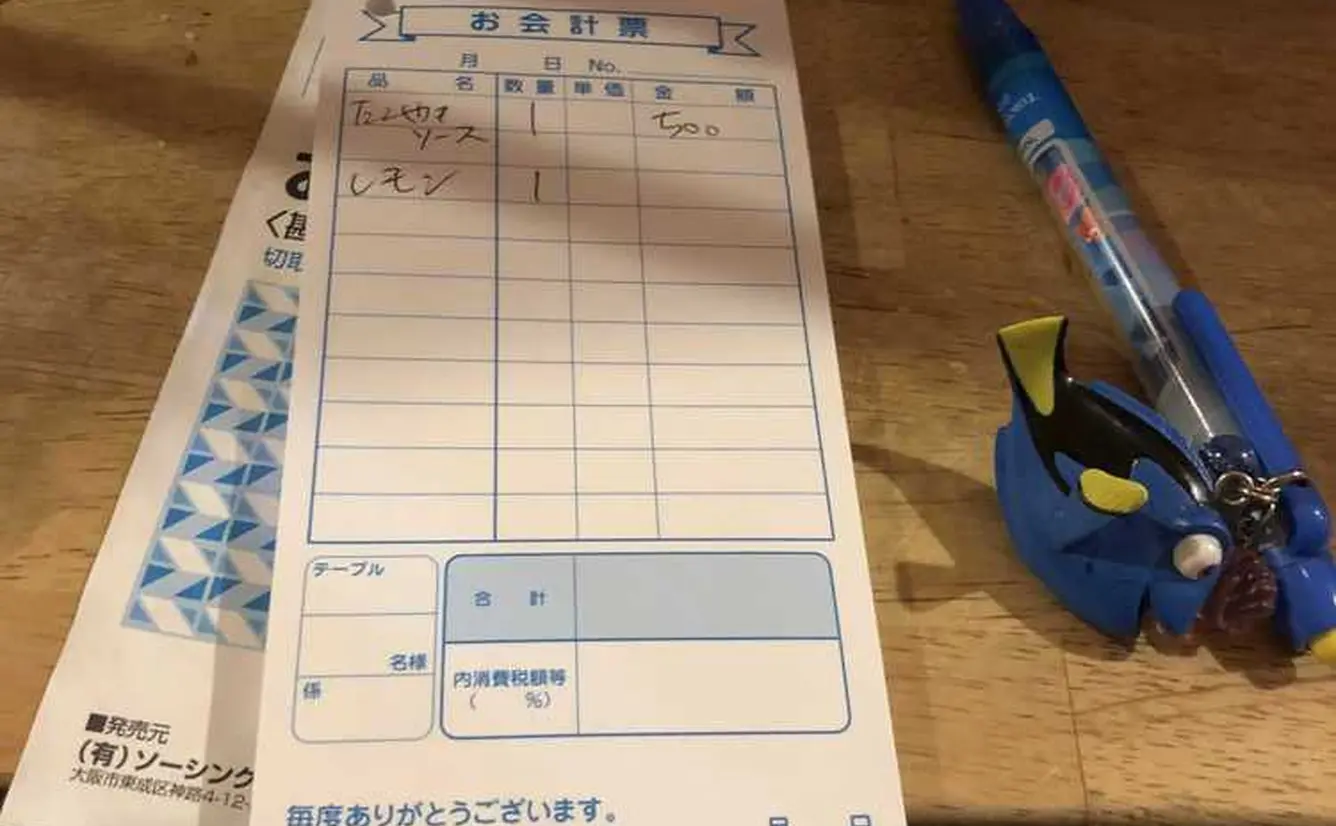 お会計票
月 日 No.
品名 数量 単価 金額
たこやき 1 500
ソース
レモン 1
テーブル
名様
係
合計
内消費税額等
( %)
毎度ありがとうございます。
切取
■発売元
(有)ソーシング
大阪市東成区神路4-12-